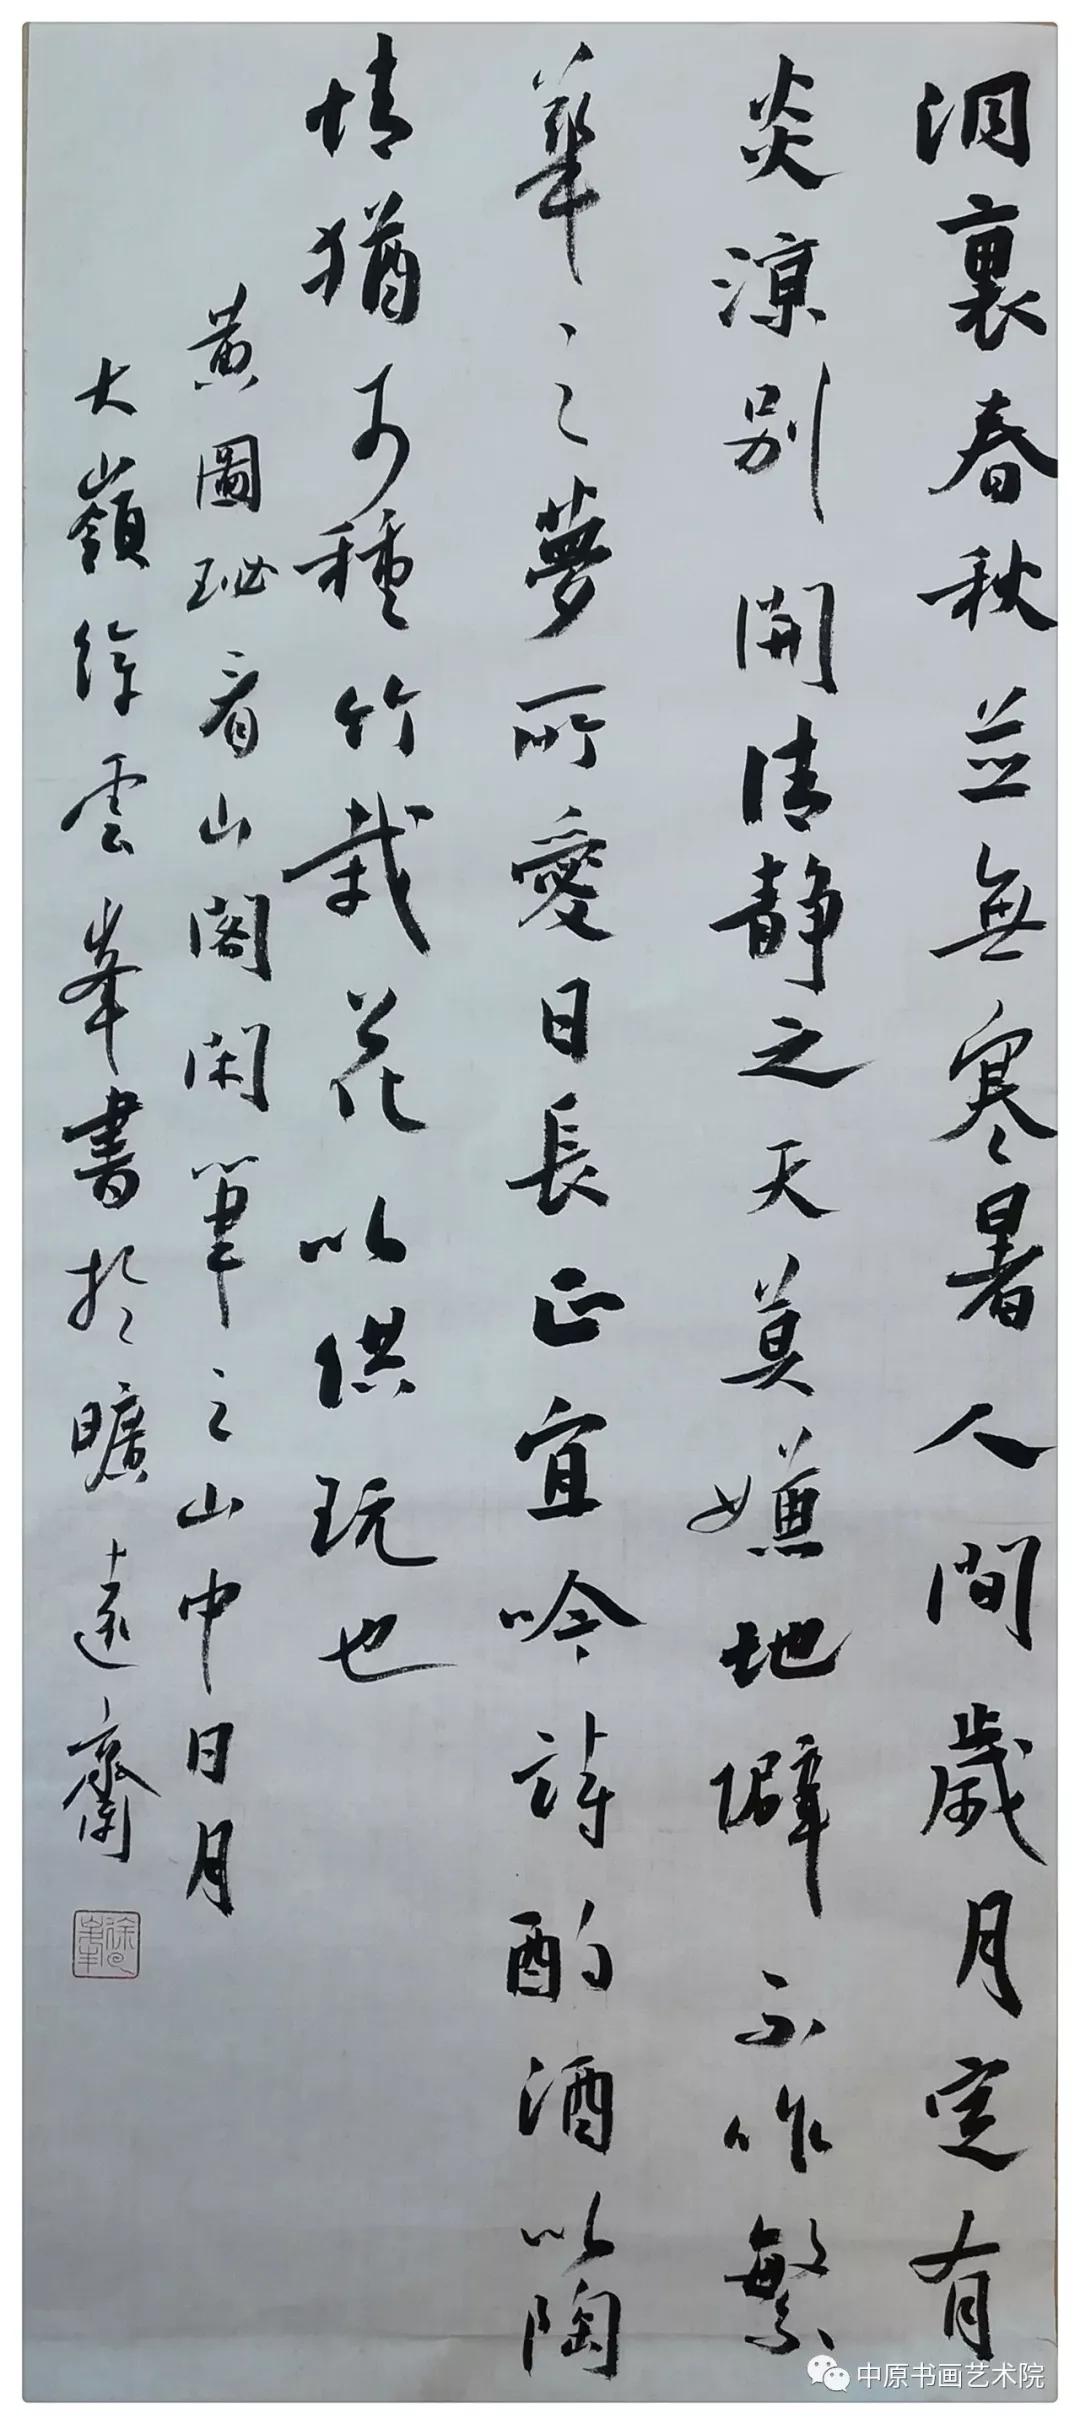 洞裏春秋並無寒暑人間歲月定有
炎涼別開清靜之天莫嫌地僻不作繁
華之夢所愛日長正宜吟詩酌酒以陶
情猶可種竹栽花以供玩也
黃圖珌看山閣閑筆之山中日月
大嶺徐雲峯書於曠遠齋
中原书画艺术院